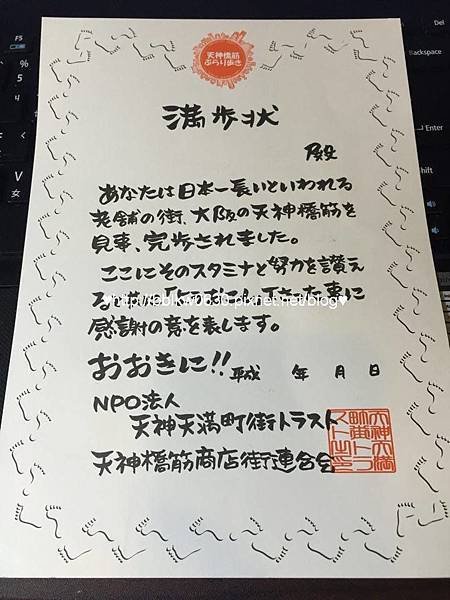 天神橋筋
ぶらり歩き
満歩状
殿
あなたは日本一長いといわれる
老舗の街、大阪の天神橋筋を
見事、完歩されました。
ここにそのスタミナと努力を讃え
る
事に
感謝の意を表します。
おおきに!!
平成 年 月 日
NPO法人
天神天満町街トラスト
天神橋筋商店街連合会
天神天満
町街トラ
スト之印
F5
%
5
Del
Backspace
Enter
Shift
Ctrl